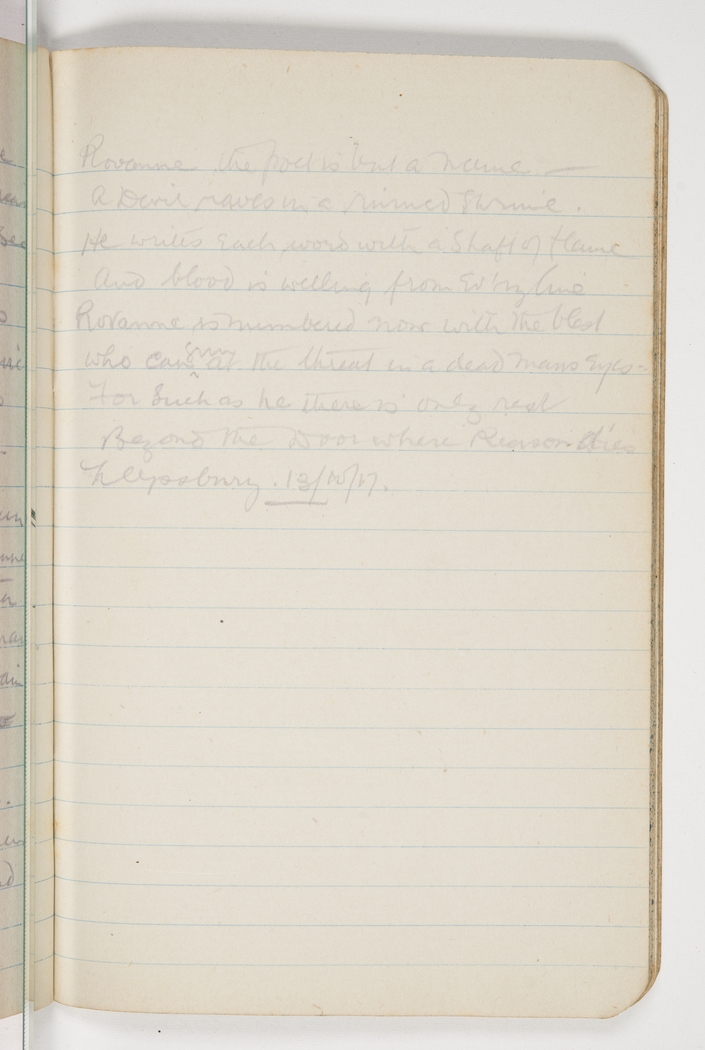 Rovanne, the poet is but a name —
A Devil raves in a ruined Shrine.
He writes Each word with a Shaft of flame
And blood is welling from Ev'ry line
Rovanne is numbered now with the blest
who can grin at the threat in a dead mans Eyes -
For Such as he there is only rest
Beyond the Door where Reason dies
13/10/17.